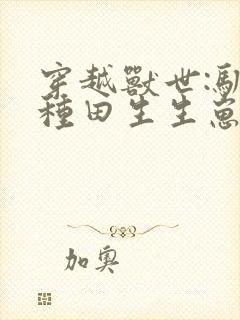 穿越獸世:馴
種田生生崽
加奧